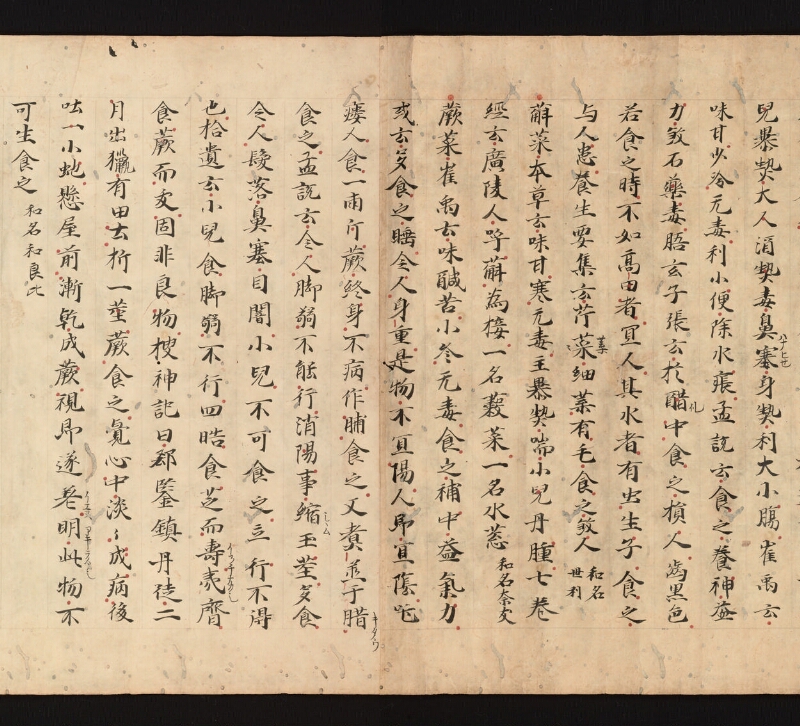 兒暴熱大人酒熱毒鼻塞身熱利大小腸崔禹云
味甘少冷无毒利小便除水張孟詵云食之養神益
力殺石藥毒陶玄子張云於醋中食之損人齒黑色
若食之時不如高田者宜人其水者有虫生子食之
与人患養生要集云芹菜細葉有毛食之殺人 和名世利
蓴菜本草云味甘寒无毒主暴熱喘小兒丹腫七卷
經云廣陵人呼蓴為接一名菜一名水葱 和名奈波
蕨菜崔禹云味鹹苦小冷无毒食之補中益氣力
或云多食之睡令人身重是物不宜陽人即宜陰
瘻人食一兩斤蕨終身不病作脯食之又煮並于腊
食之孟詵云令人脚弱不能行消陽事縮玉莖多食
令人髮落鼻塞目闇小兒不可食之立行不得
也拾遺云小兒食脚弱不行四皓食芝而壽夷齊
食蕨而夭固非良物搜神記曰郄鑒鎮丹徒二
月出獵有甲士折一莖蕨食之覺心中淡〻成病後
吐一小虵懸屋前漸乾成蕨視即遂老明此物不
可生食之 和名和良比